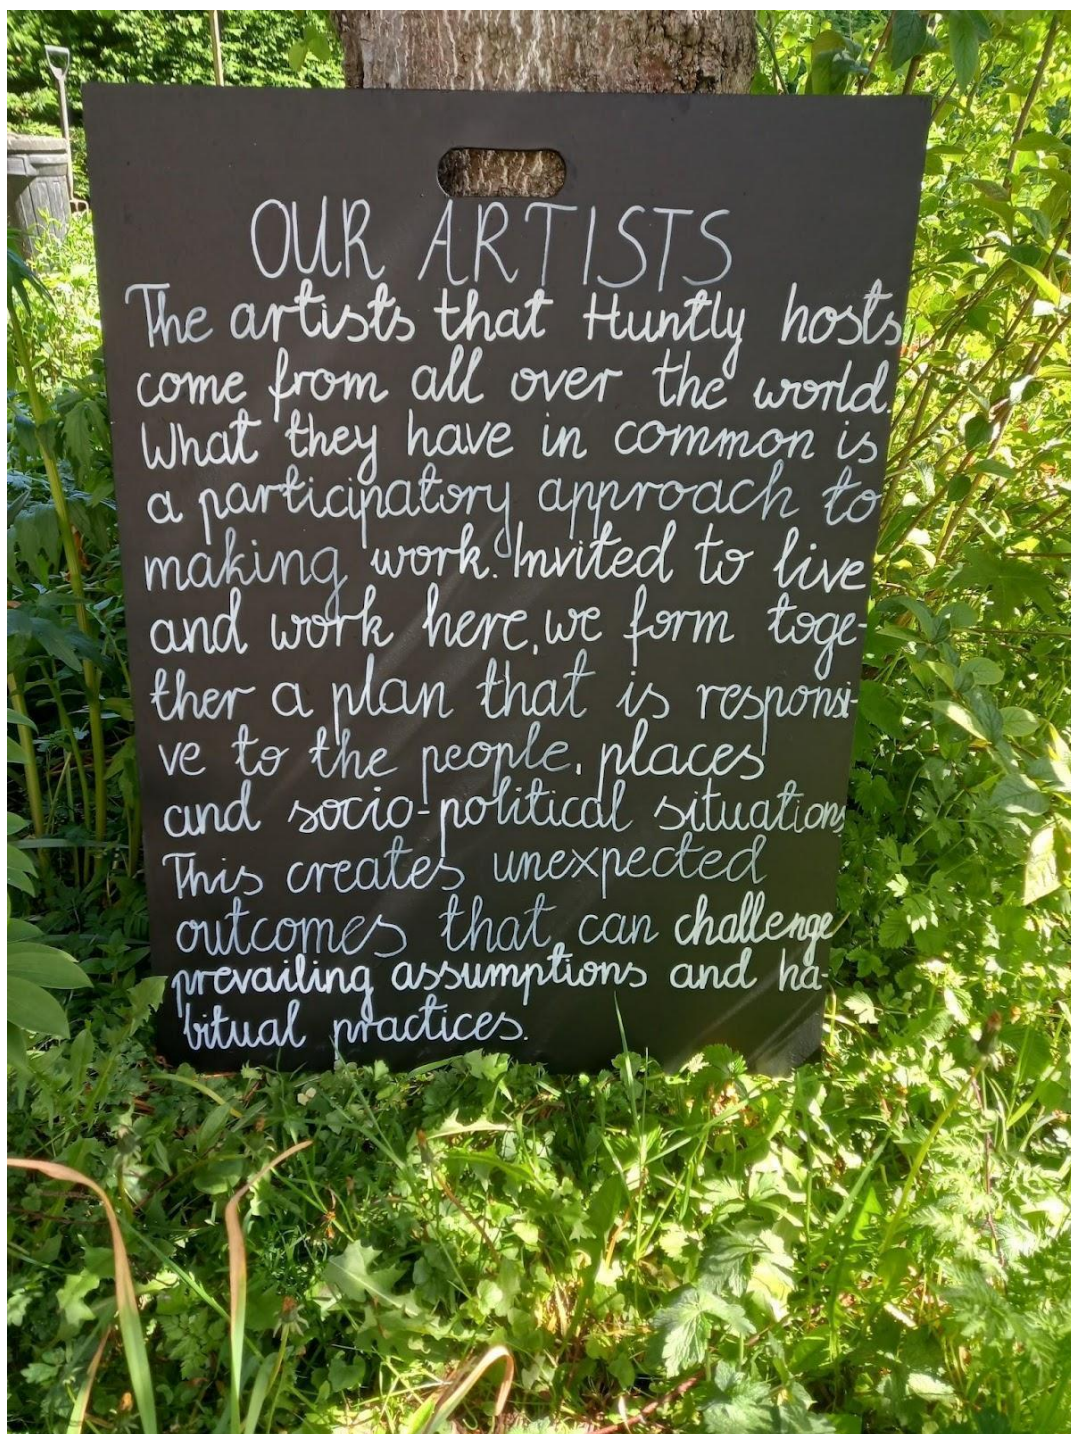 OUR ARTISTS
The artists that Huntly hosts
come from all over the world.
What they have in common is
a participatory approach to
making work. Invited to live
and work here, we form toge-
ther a plan that is responsi-
ve to the people, places
and socio-political situations
This creates unexpected
outcomes that can challenge
prevailing assumptions and ha-
bitual practices.